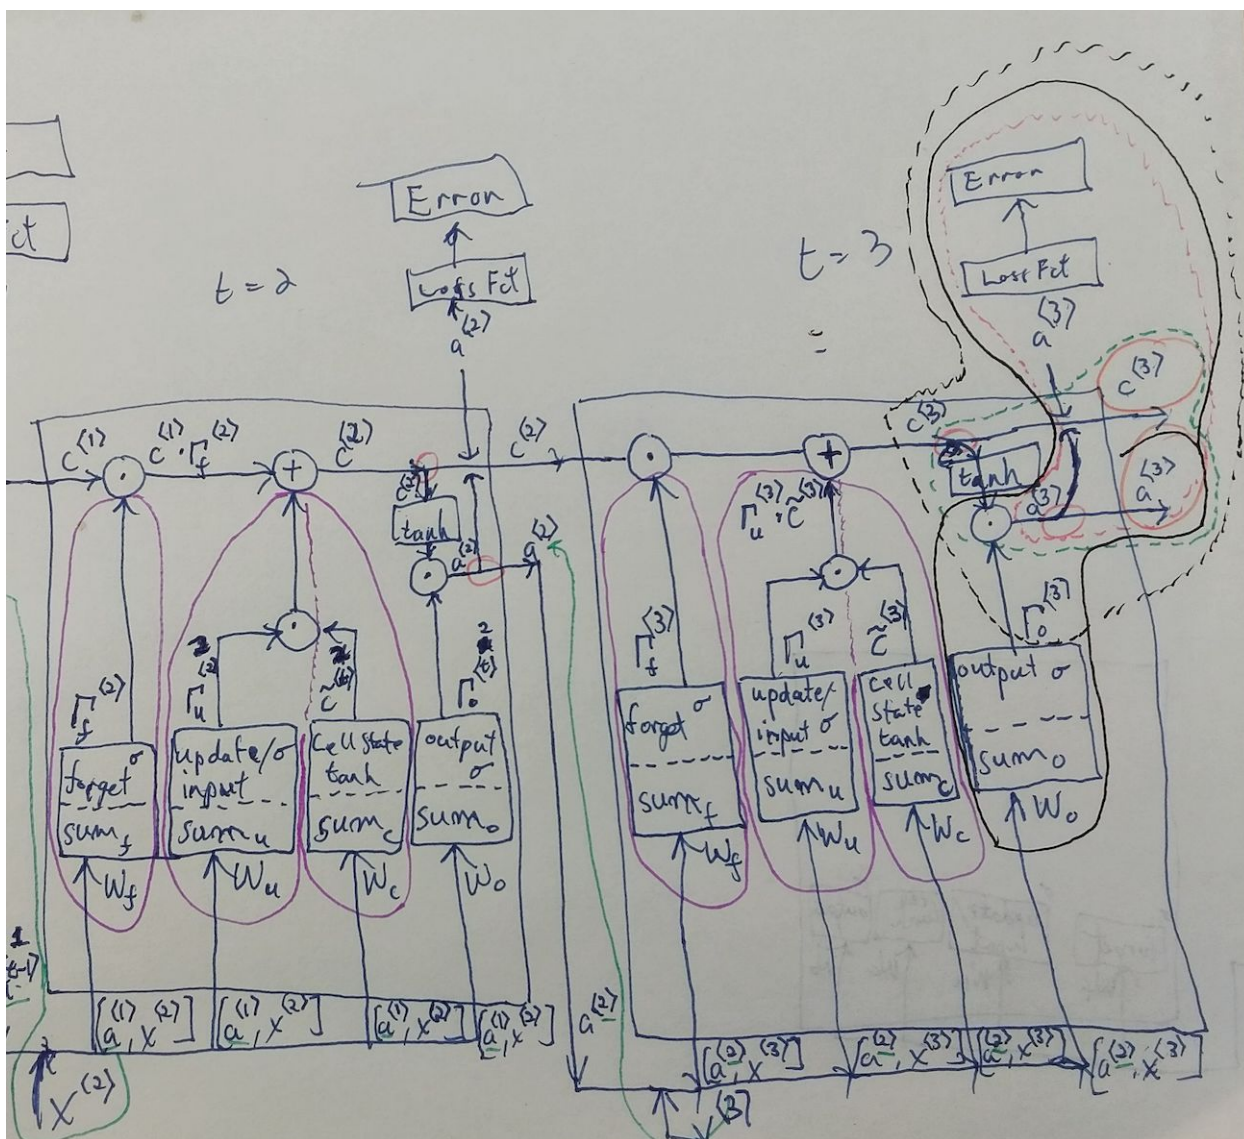 ct
t = 2
Error
Loss Fct
a⟨2⟩
c⟨1⟩
c⟨1⟩ · Γf⟨2⟩
+
c⟨2⟩
c⟨2⟩
c⟨2⟩
tanh
a⟨2⟩
a⟨2⟩
Γf⟨2⟩
Γu⟨2⟩
forget σ
sum_f
update/σ
input
sum_u
cell state
tanh
sum_c
output
σ
sum_o
W_f
W_u
W_c
W_o
[a⟨1⟩, x⟨2⟩]
[a⟨1⟩, x⟨2⟩]
[a⟨1⟩, x⟨2⟩]
[a⟨1⟩, x⟨2⟩]
x⟨2⟩
t = 3
=
Error
Loss Fct
a⟨3⟩
c⟨3⟩
+
c⟨3⟩
tanh
a⟨3⟩
a⟨3⟩
Γu⟨3⟩ · c̃⟨3⟩
Γf⟨3⟩
Γu⟨3⟩
c̃⟨3⟩
Γo⟨3⟩
forget σ
sum_f
update/
input σ
sum_u
cell
state
tanh
sum_c
output σ
sum_o
W_f
W_u
W_c
W_o
a⟨2⟩
[a⟨2⟩, x⟨3⟩]
[a⟨2⟩, x⟨3⟩]
[a⟨2⟩, x⟨3⟩]
[a⟨2⟩, x⟨3⟩]